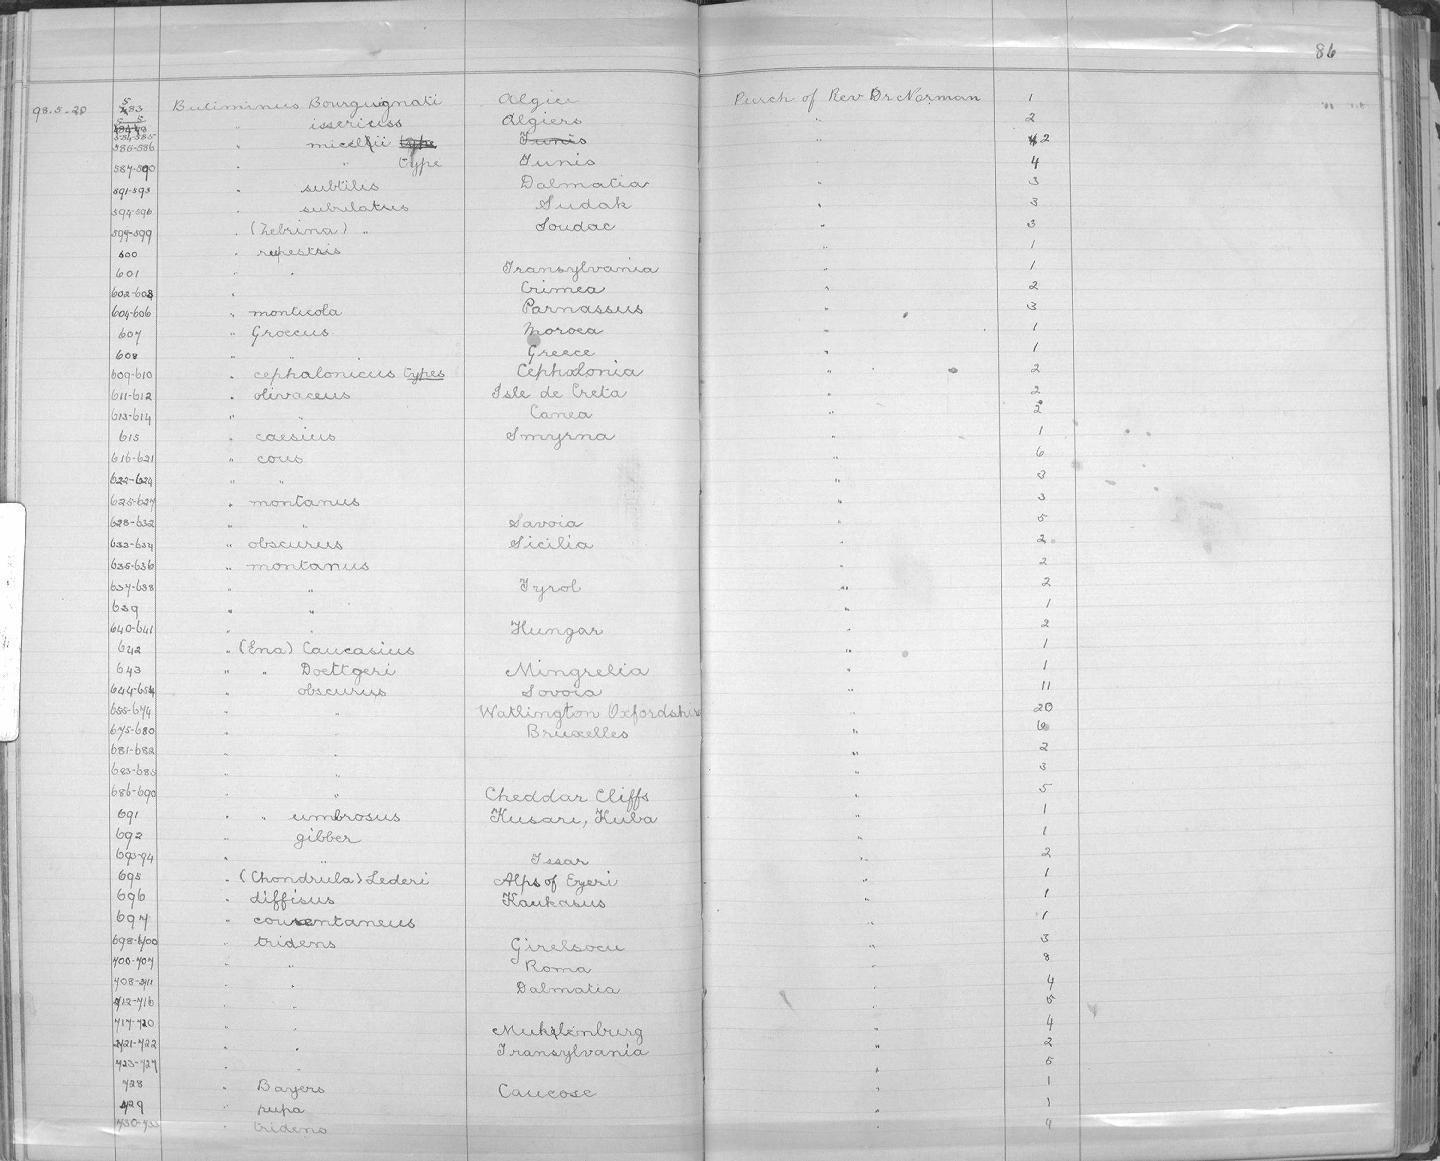 86
98.5.20 583 Buliminus Bourguignati Algier Purch of Rev Dr Norman 1
" issericus Algiers " 2
585-586 " micellii type Tunis " 2
587-590 " " type Tunis 4
591-593 " subtilis Dalmatia " 3
594-596 " subulatus Sudak " 3
597-599 " (Zebrina) " Soudac " 3
600 " rupestris " 1
601 " " Transylvania " 1
602-603 " Crimea " 2
604-606 " monticola Parnassus " 3
607 " Groecus Moroea " 1
608 " " Greece " 1
609-610 " cephalonicus types Cephalonia " 2
611-612 " olivaceus Isle de Creta " 2
613-614 " " Canea " 2
615 " caesius Smyrna " 1
616-621 " cous " 6
622-624 " " " 3
625-627 " montanus " 3
628-632 " " Savoia " 5
633-634 " obscurus Sicilia " 2
635-636 " montanus " 2
637-638 " Tyrol " 2
639 " " " 1
640-641 " " Hungar " 2
642 " (Ena) Caucasius " 1
643 " " Doettgeri Mingrelia " 1
644-654 " obscurus Sovoia " 11
655-674 " " Watlington Oxfordshire 20
675-680 " Bruxelles " 6
681-682 " " " 2
683-685 " " " 3
686-690 " " Cheddar Cliffs " 5
691 " " umbrosus Kusari, Kuba " 1
692 " gibber " 1
693-94 " " Issar " 2
695 " (Chondrula) Lederi Alps of Eyeri " 1
696 " diffisus Kaukasus " 1
697 " cousentaneus " 1
698-700 " tridens Girelsocu " 3
700-707 " " Roma " 8
708-711 " " Dalmatia " 4
712-716 " " " 5
717-720 " " " 4
721-722 " " Transylvania " 2
723-727 " " " 5
728 " Bayers Caucose " 1
729 " pupa 1
" tridens " 4